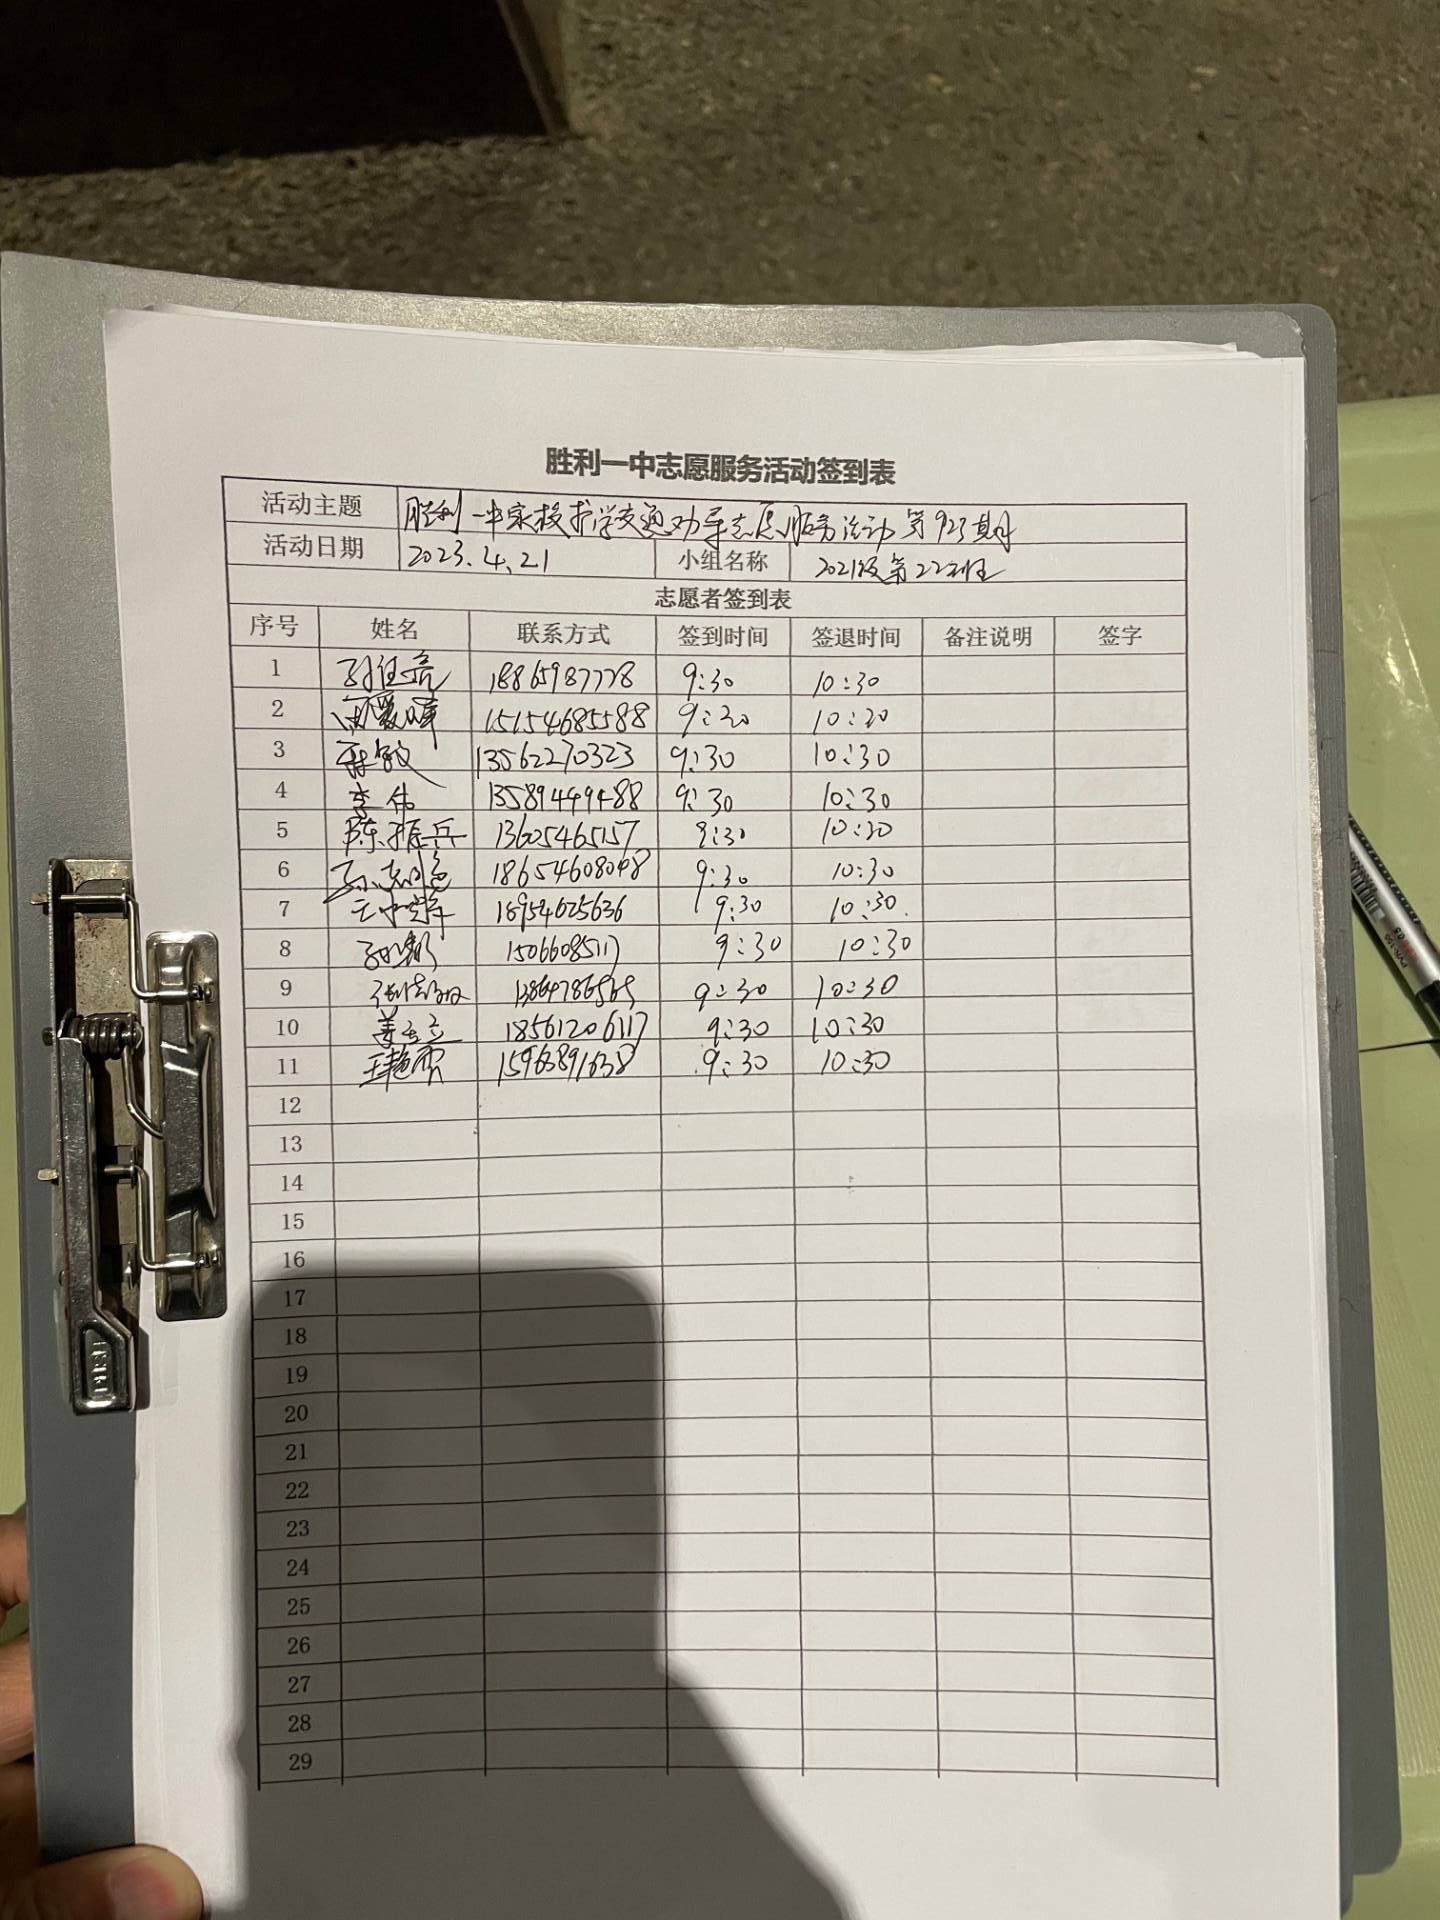 胜利一中志愿服务活动签到表
活动主题 胜利一中家校护学交通劝导志愿服务活动第923期
活动日期 2023.4.21 小组名称 2021级第22班
志愿者签到表
序号 姓名 联系方式 签到时间 签退时间 备注说明 签字
1 18865987778 9:30 10:30
2 15154685588 9:30 10:30
3 13562270323 9:30 10:30
4 李伟 13589449488 9:30 10:30
5 陈振兵 13605465157 9:30 10:30
6 9:30 10:30
7 18954625636 9:30 10:30
8 9:30 10:30
9 9:30 10:30
10 18561206117 9:30 10:30
11 王艳霞 15963891638 9:30 10:30
12
13
14
15
16
17
18
19
20
21
22
23
24
25
26
27
28
29